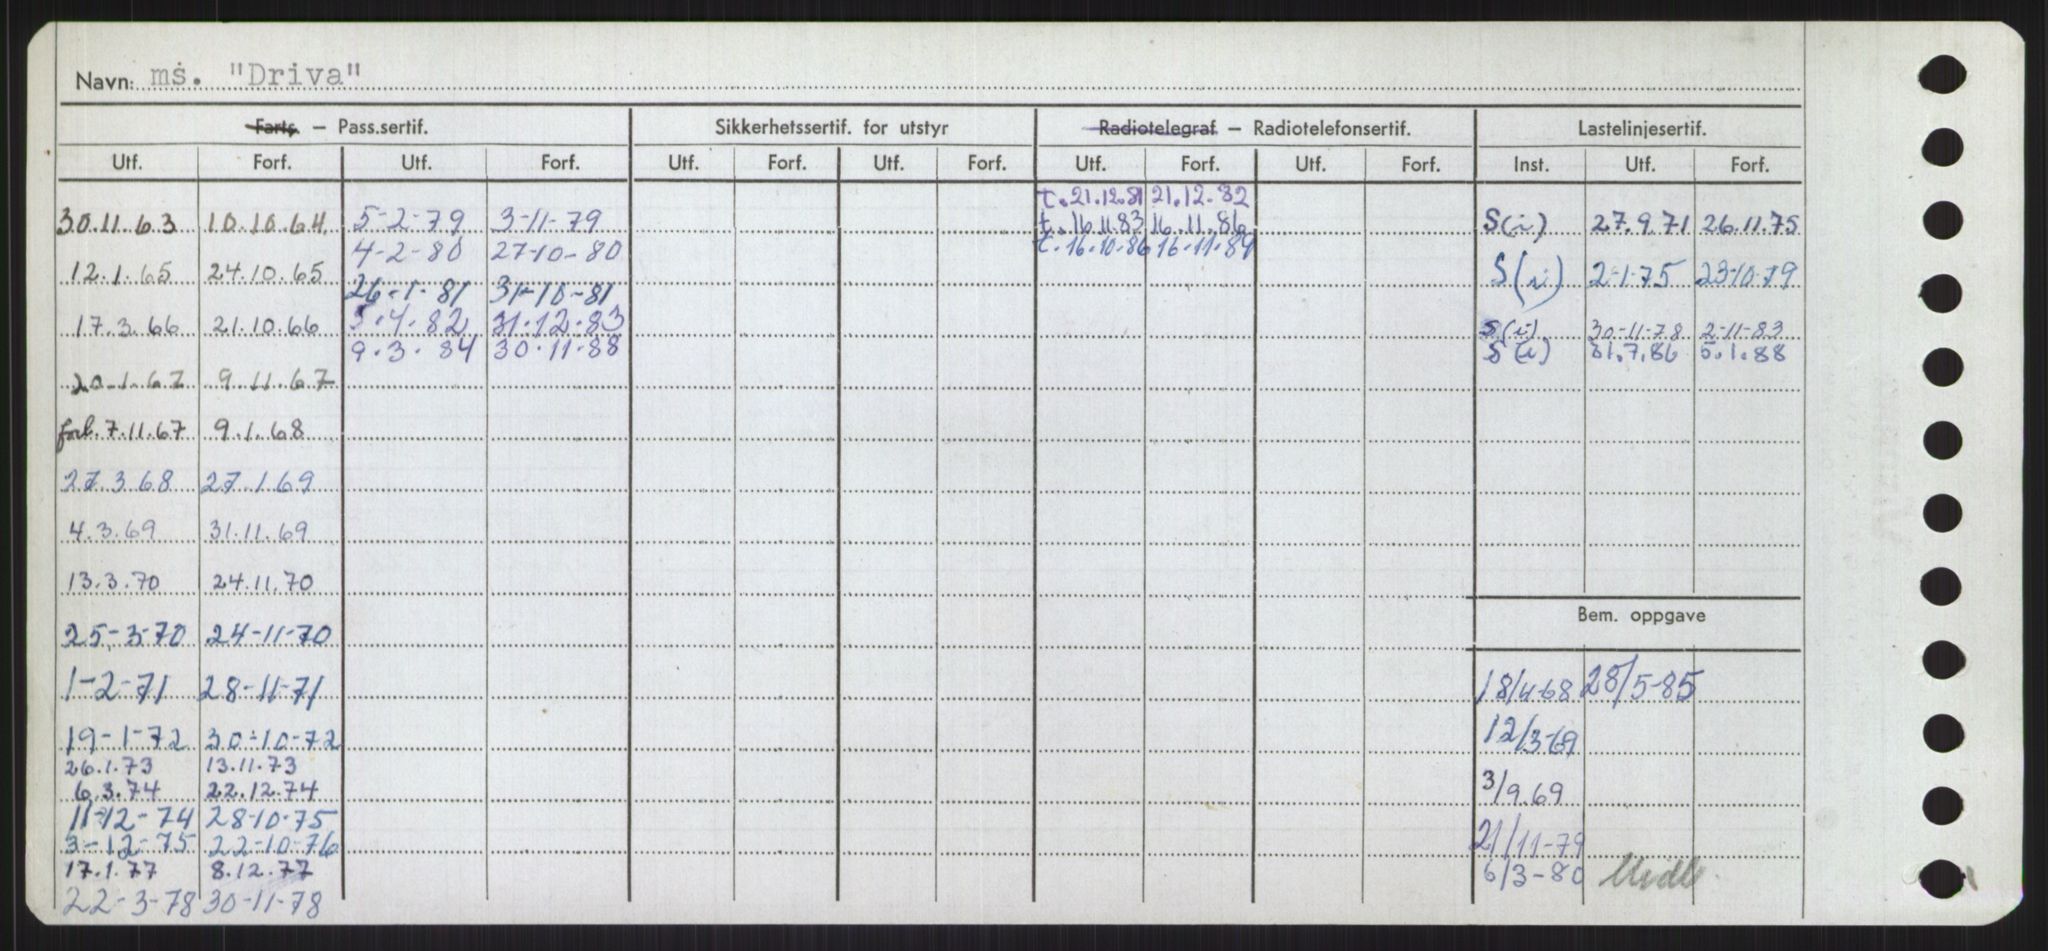 Navn: ms. "Driva"
Farts. – Pass.sertif. Sikkerhetssertif. for utstyr Radiotelegraf – Radiotelefonsertif. Lastelinjesertif.
Utf. Forf. Utf. Forf. Utf. Forf. Utf. Forf. Utf. Forf. Utf. Forf. Inst. Utf. Forf.
t. 21.12.81 21.12.82
30.11.63 10.10.64 5-2-79 3-11-79 t. 16.11.83 16.11.86 S(i) 27.9.71 26.11.75
4-2-80 27-10-80 t. 16.10.86 16-11-87
12.1.65 24.10.65 26-1-81 31-10-81 S(i) 2-1-75 23-10-79
17.3.66 21.10.66 5.4.82 31.12.83 S(i) 30-11-78 2-11-83
9.3.84 30.11.88 S(i) 31.7.86 5.1.88
20.1.67 9.11.67
forl. 7.11.67 9.1.68
27.3.68 27.1.69
4.3.69 31.11.69
13.3.70 24.11.70
Bem. oppgave
25-3-70 24-11-70
1-2-71 28-11-71 18/4-68 28/5-85
19-1-72 30-10-72 12/3-69
26.1.73 13.11.73
6.3.74 22.12.74 3/9.69
11-12-74 28-10-75
3-12-75 22-10-76 21/11-79
17.1.77 8.12.77 6/3-80
22-3-78 30-11-78